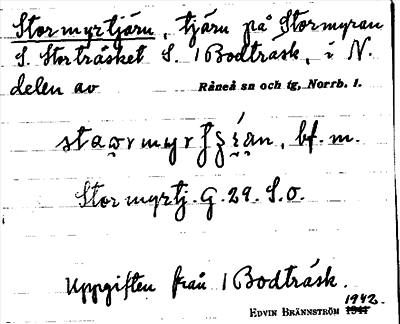 Stormyrtjärn, tjärn på Stormyran
S. Storträsket S. 1 Bodträsk, i N.
delen av Råneå sn och tg, Norrb. l.
bf. m.
Stormyrtj. G. 29. S.O.
Uppgiften från 1 Bodträsk.
1942.
EDVIN BRÄNNSTRÖM 1941